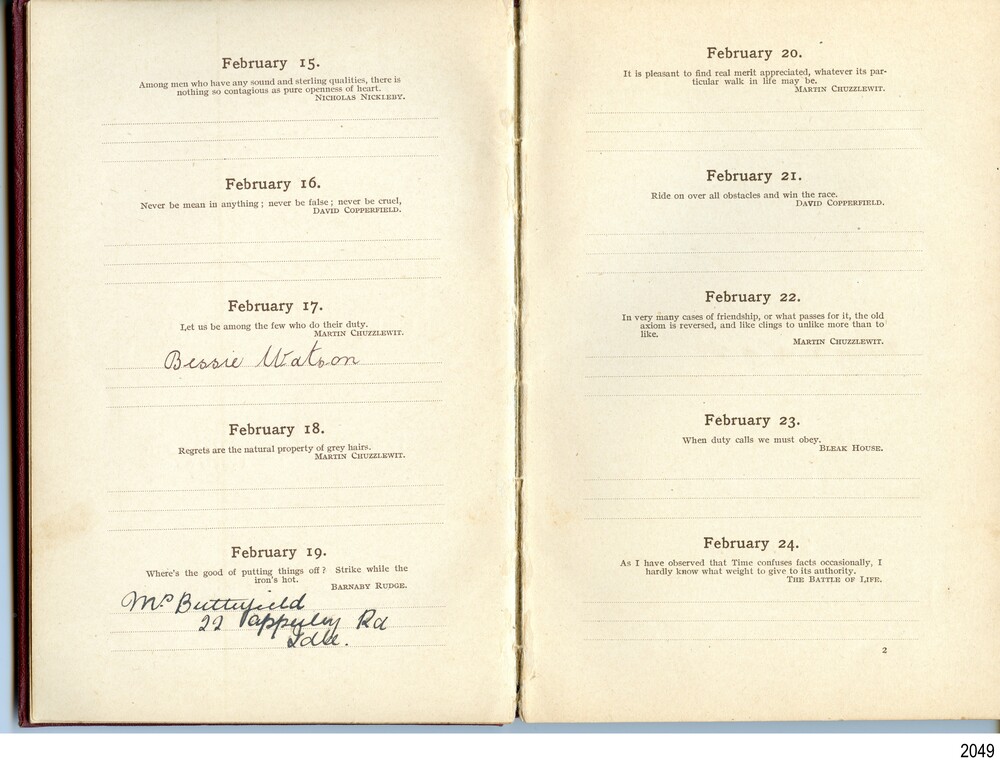 February 15.
Among men who have any sound and sterling qualities, there is
nothing so contagious as pure openness of heart.
NICHOLAS NICKLEBY.
February 16.
Never be mean in anything; never be false; never be cruel,
DAVID COPPERFIELD.
February 17.
Let us be among the few who do their duty.
MARTIN CHUZZLEWIT.
Bessie Watson
February 18.
Regrets are the natural property of grey hairs.
MARTIN CHUZZLEWIT.
February 19.
Where's the good of putting things off? Strike while the
iron's hot.
BARNABY RUDGE.
Mrs Butterfield
22 Apperley Rd
Idle.
February 20.
It is pleasant to find real merit appreciated, whatever its par-
ticular walk in life may be.
MARTIN CHUZZLEWIT.
February 21.
Ride on over all obstacles and win the race.
DAVID COPPERFIELD.
February 22.
In very many cases of friendship, or what passes for it, the old
axiom is reversed, and like clings to unlike more than to
like.
MARTIN CHUZZLEWIT.
February 23.
When duty calls we must obey.
BLEAK HOUSE.
February 24.
As I have observed that Time confuses facts occasionally, I
hardly know what weight to give to its authority.
THE BATTLE OF LIFE.
2
2049